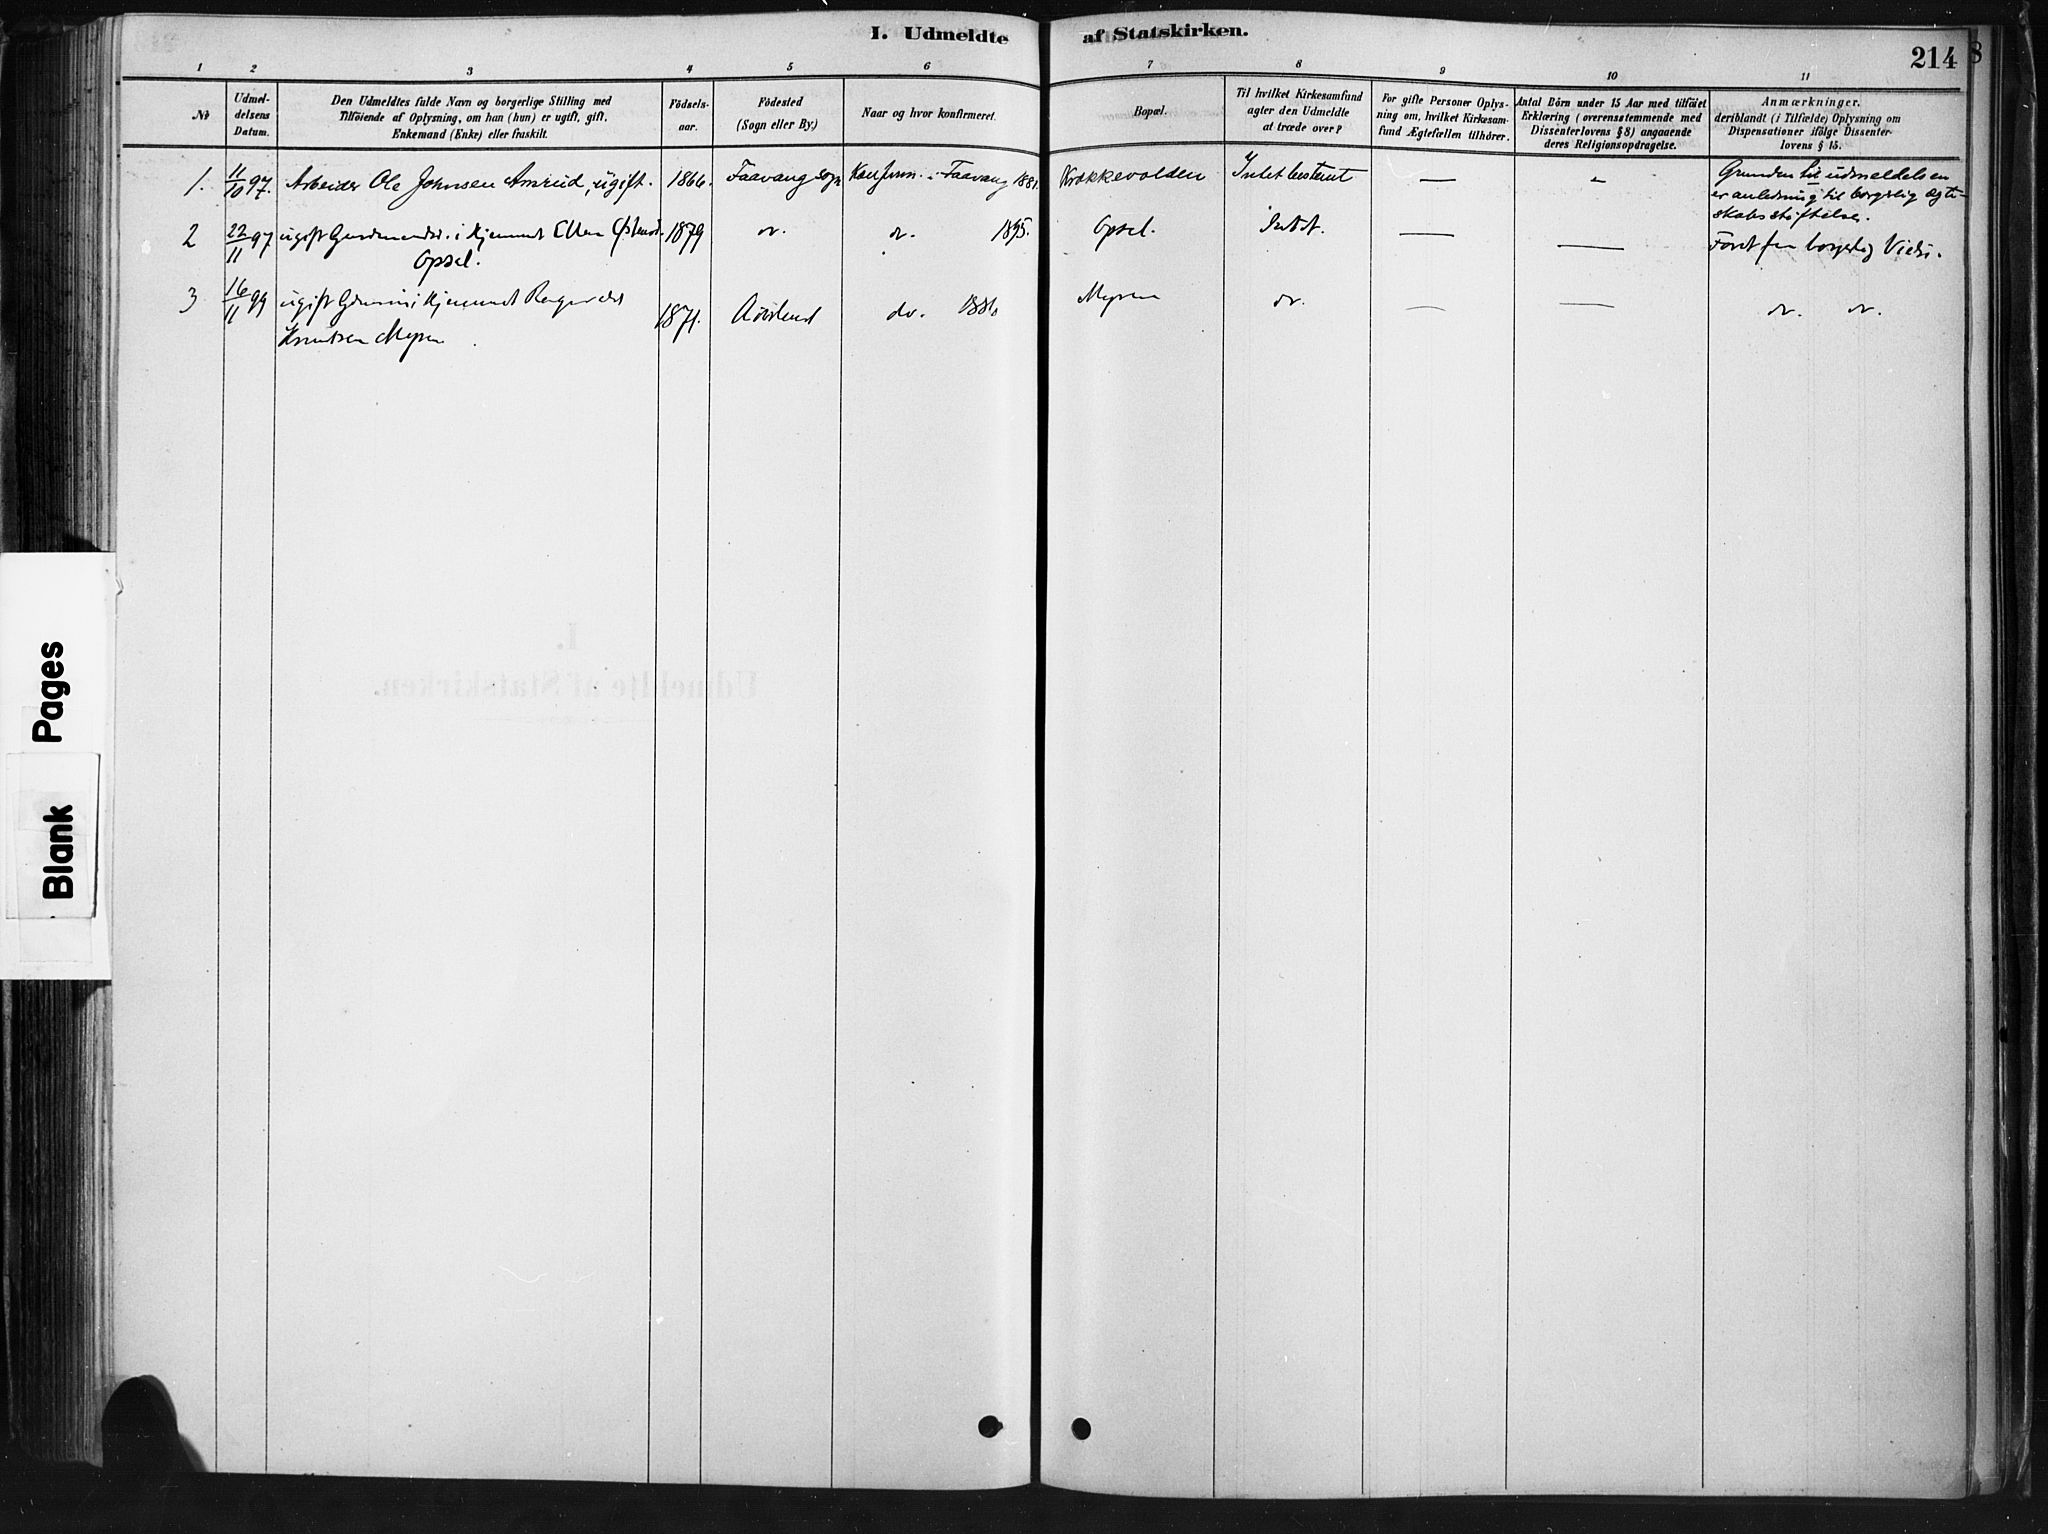 I. Udmeldte af Statskirken.
214
8
1 2 3 4 5 6 7 8 9 10 11
№
Udmel-
delsens
Datum.
Den Udmeldtes fulde Navn og borgerlige Stilling med
Tilföiende af Oplysning, om han (hun) er ugift, gift,
Enkemand (Enke) eller fraskilt.
Födsels-
aar.
Födested
(Sogn eller By.)
Naar og hvor konfirmeret.
Bopæl.
Til hvilket Kirkesamfund
agter den Udmeldte
at træde over?
For gifte Personer Oplys-
ning om, hvilket Kirkesam-
fund Ægtefællen tilhörer.
Antal Börn under 15 Aar med tilföiet
Erklæring (overensstemmende med
Dissenterlovens § 8) angaaende
deres Religionsopdragelse.
Anmærkninger,
deriblandt (i Tilfælde) Oplysning om
Dispensationer ifölge Dissenter-
lovens § 15.
1. 11/10 97. Arbeider Ole Johnsen Amrud, ugift. 1866. Faavang Sogn Konfirm. i Faavang 1881. Krokkevolden Intet bestemt — -
Grunden til udmeldelsen
er anledning til borgerlig ægte-
skabsstiftelse.
2 22/11 97 ugift i Hjemmet Ellen 1879 do. do. 1895. Opsel. Intet. — — for borgerlig Vielse.
Opsel.
3 16/11 99 ugift i Hjemmet 1871. do. 1886 Myren do. — — do. do.
Knutsen Myren
I.
Udmeldte af Statskirken.
Blank Pages